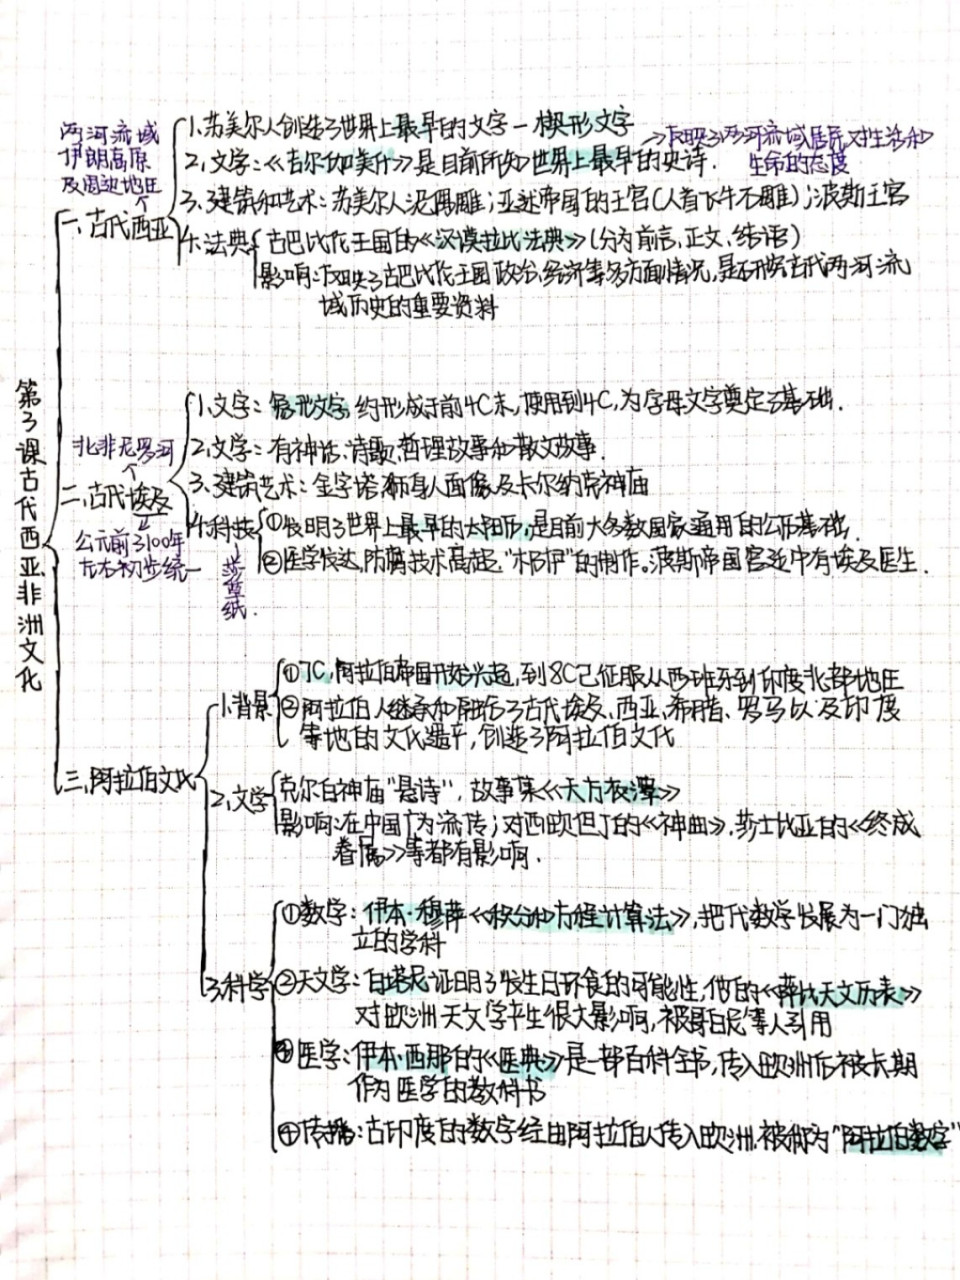 第3课古代西亚非洲文化
两河流域
伊朗高原
及周边地区
一、古代西亚
1.苏美尔人创造了世界上最早的文字－楔形文字
2.文学:《吉尔伽美什》是目前所知世界上最早的史诗.
→反映了两河流域居民对生活和
生命的态度
3.建筑和艺术:苏美尔人浮雕;亚述帝国的王宫(人首飞牛石雕);波斯王宫
4.法典
古巴比伦王国的《汉谟拉比法典》(分为前言,正文,结语)
影响:反映了古巴比伦王国政治,经济等多方面情况,是研究古代两河流
域历史的重要资料
北非尼罗河
二、古代埃及
公元前3100年
左右初步统一
1.文字:象形文字,约形成于前4C末,使用到4C,为字母文字奠定了基础.
2.文学:有神话,诗歌,哲理故事和散文故事.
3.建筑艺术:金字塔狮身人面像及卡尔纳克神庙
4.科技
莎草纸.
①发明了世界上最早的太阳历,是目前大多数国家通用的公历基础.
②医学发达,防腐技术高超,"木乃伊"的制作。波斯帝国宫廷中有埃及医生.
三、阿拉伯文化
1.背景
①7C,阿拉伯帝国开始兴起,到8C已征服从西班牙到印度北部地区
②阿拉伯人继承和融合了古代埃及、西亚、希腊、罗马以及印度
等地的文化遗产,创造了阿拉伯文化
2.文学
克尔白神庙"悬诗",故事集《天方夜潭》
影响:在中国广为流传;对西欧但丁的《神曲》,莎士比亚的《终成
眷属》等都有影响.
3.科学
①数学:伊本·穆萨《积分和方程计算法》,把代数学发展为一门独
立的学科
②天文学:白塔尼证明了发生日环食的可能性,他的《萨比天文历表》
对欧洲天文学产生很大影响,被哥白尼等人引用
③医学:伊本·西那的《医典》是一部百科全书,传入欧洲后被长期
作为医学的教科书
④传播:古印度的数字经由阿拉伯人传入欧洲,被称为"阿拉伯数字"